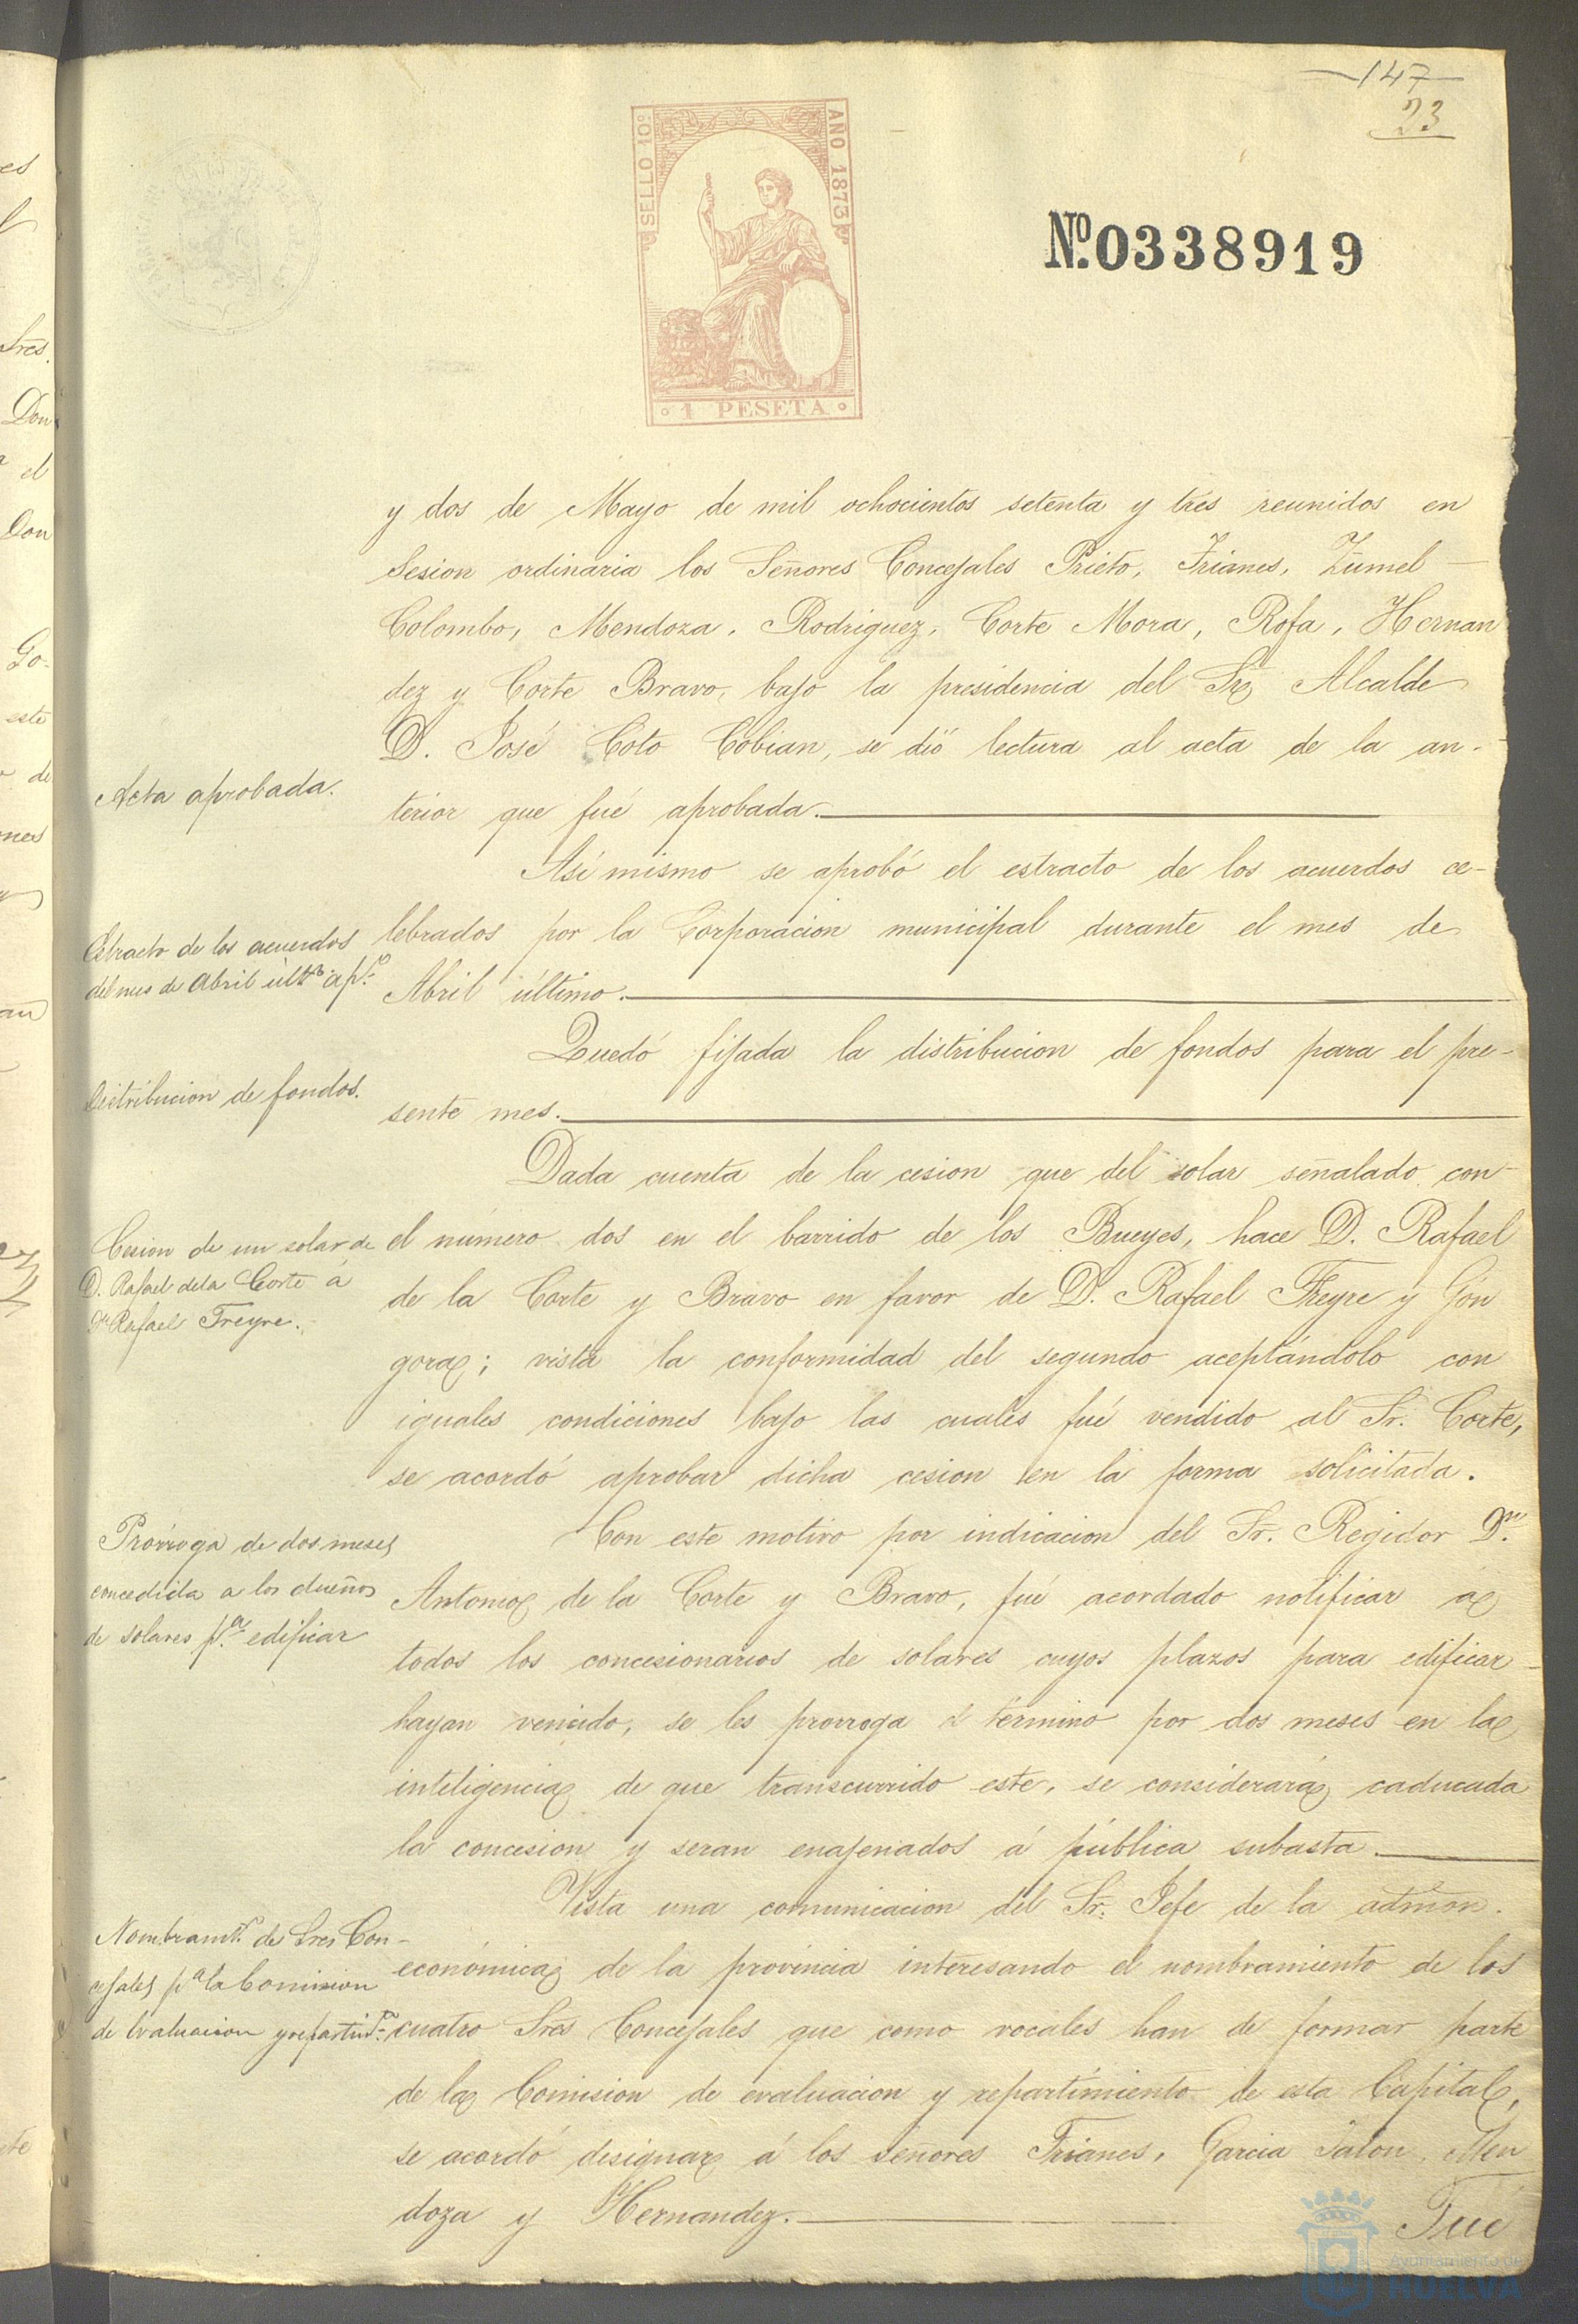 147
23
SELLO 10º
AÑO 1873
1 PESETA
Nº. 0338919
y dos de Mayo de mil ochocientos setenta y tres reunidos en
Sesion ordinaria los Señores Concejales Prieto, Trianes, Zumel
Colombo, Mendoza, Rodriguez, Corte Mora, Rofa, Hernan
dez y Corte Bravo, bajo la presidencia del Sr. Alcalde
D. José Coto Cobian, se dió lectura al acta de la an-
Acta aprobada.
terior que fué aprobada.
Asi mismo se aprobó el estracto de los acuerdos ce-
Estracto de los acuerdos
del mes de Abril últº. apº.
lebrados por la Corporacion municipal durante el mes de
Abril último.
Quedó fijada la distribucion de fondos para el pre-
Distribucion de fondos.
sente mes.
Dada cuenta de la cesion que del solar señalado con
Cesion de un solar de
D. Rafael de la Corte á
Dn Rafael Freyre.
el número dos en el barrido de los Bueyes, hace D. Rafael
de la Corte y Bravo en favor de D. Rafael Freyre y Gón
gora; vista la conformidad del segundo aceptándolo con
iguales condiciones bajo las cuales fué vendido al Sr. Corte,
se acordó aprobar dicha cesion en la forma solicitada.
Prórroga de dos meses
concedida a los dueños
de solares pª. edificar
Con este motivo por indicacion del Sr. Regidor Dn.
Antonio de la Corte y Bravo, fué acordado notificar á
todos los concesionarios de solares cuyos plazos para edificar
hayan vencido, se les prorroga el término por dos meses en la
inteligencia de que transcurrido este, se considerará caducada
la concesion y seran enajenados á pública subasta.
Vista una comunicacion del Sr. Jefe de la admon.
Nombramtº. de Sres Con-
cejales pª la Comision
de Evaluacion y repartimtº.
económica de la provincia interesando el nombramiento de los
cuatro Sres Concejales que como vocales han de formar parte
de la Comision de evaluacion y repartimiento de esta Capital,
se acordó designar á los señores Trianes, Garcia Jalon, Men
doza y Hernandez.
Fué
Ayuntamiento de
HUELVA